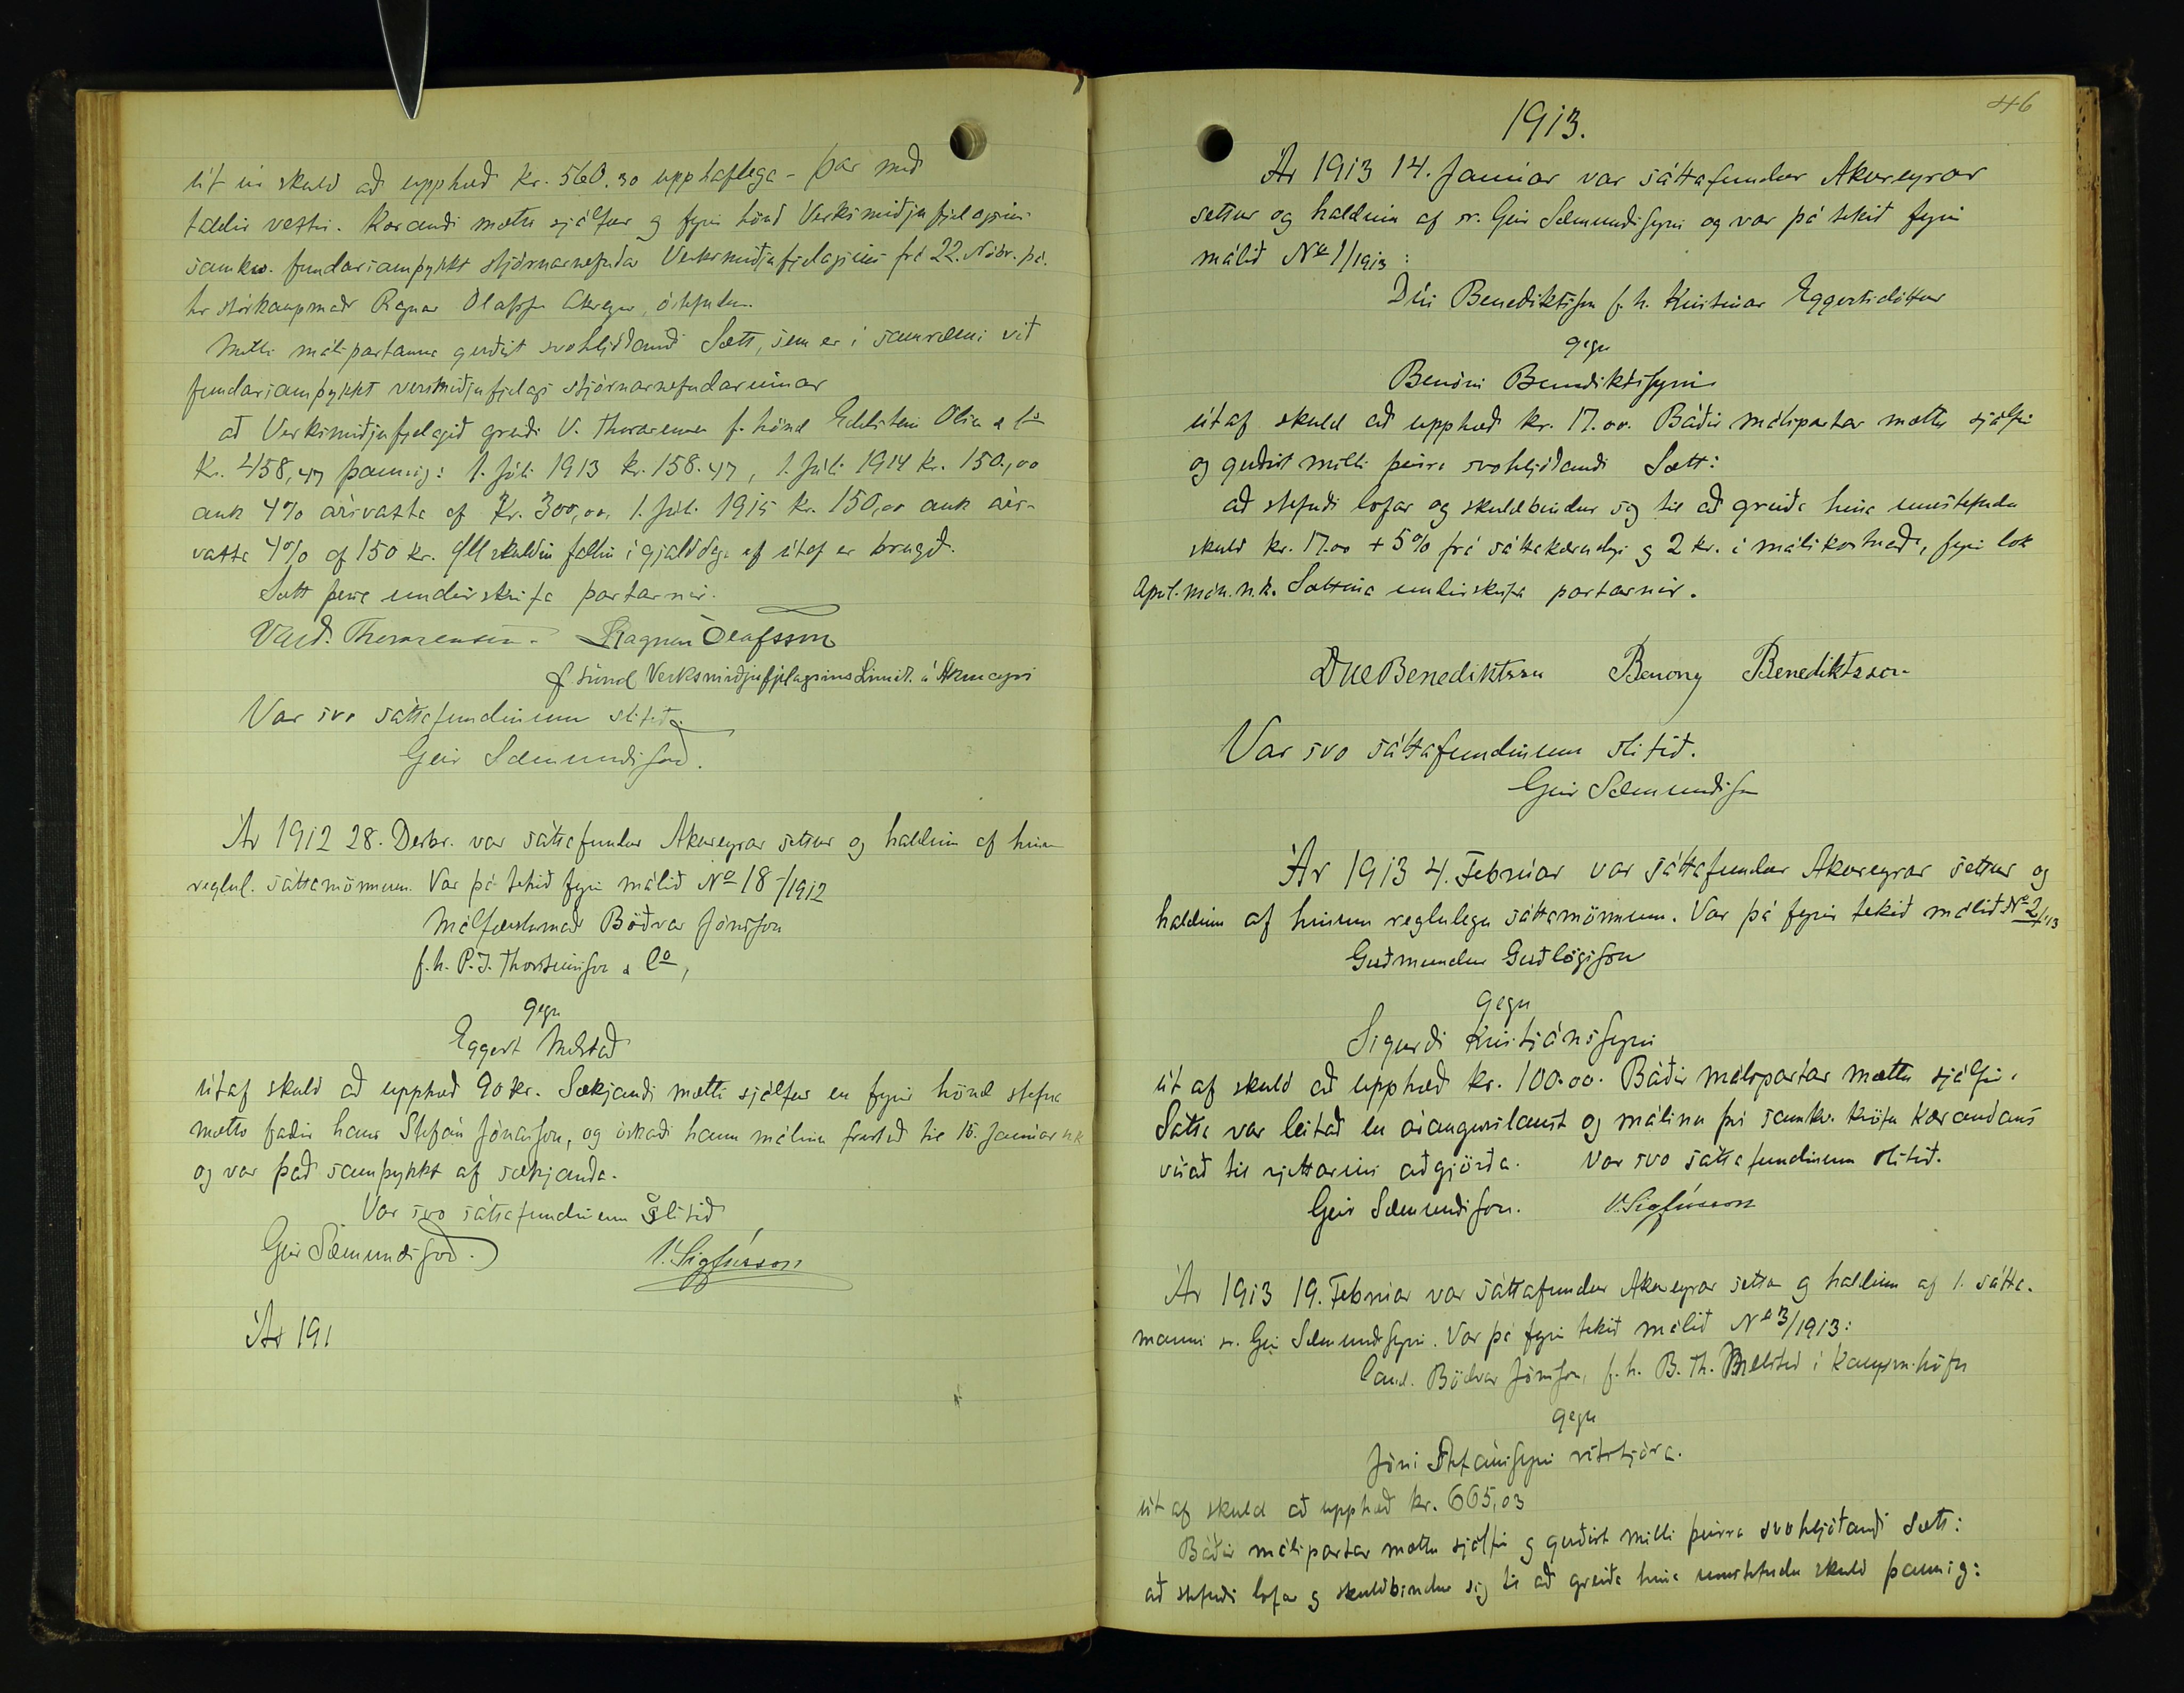 út úr skuld að upphæð kr. 560.30 upphaflega - þar með
taldir vextir. Kærandi mætti sjálfur og fyrir hönd Verksmiðjufjelagsins
samkv. fundarsamþykkt stjórnarnefndar Verksmiðjufjelagsins frá 22. Nóbr. þá.
hr stórkaupmaðr Ragnar Olafsson Akureyri, óstefndur.
Milli málspartanna gerðist svohljóðandi Sætt, sem er í samræmi við
fundarsamþykkt verksmiðjufjelags stjórnarnefndarinnar
að Verksmiðjufjelagið greiði V. Thorarensen f. hönd Edelstein Olsen & Co
Kr. 458,47 þannig: 1. Júlí 1913 kr. 158.47, 1. Júlí 1914 kr. 150,00
auk 4% ársvaxta af Kr. 300,00, 1. Júlí 1915 kr. 150,00 auk árs-
vaxta 4% af 150 kr. Öll skuldin fallin í gjalddaga ef útaf er brugð.
Sætt þessa undirskrifa partarnir.
Vald. Thorarensen. Ragnar Ólafsson
f hönd Verksmiðjufjelagsins Limit. á Akureyri
Var svo sáttafundinum slitið.
Geir Sæmundsson.
Ár 1912 28. Desbr. var sáttafundur Akureyrar settur og haldinn af hinum
reglul. sáttamönnum. Var þá tekið fyrir málið No 18/1912
Málfærslumaðr Böðvar Jónsson
f.h. P.J. Thorsteinsson & Co,
gegn
Eggert Melstað
útaf skuld að upphæð 90 kr. Sækjandi mætti sjálfur en fyrir hönd stefnda
mætti faðir hans Stefán Jónasson, og óskaði hann málinu frestað til 15. Janúar n.k
og var það samþykkt af sækjanda.
Var svo sáttafundinum slitið
Geir Sæmundsson. V. Sigfússon
Ár 191
46
1913.
Ár 1913 14. Janúar var sáttafundur Akureyrar
settur og haldinn af sr. Geir Sæmundssyni og var þá tekið fyrir
málið No 1/1913:
Dúi Benediktsson f. h. Kristínar Eggertsdóttur
gegn
Benóní Benediktssyni
útaf skuld að upphæð kr. 17.00. Báðir málspartar mættu sjálfir
og gerðist milli þeirra svohljóðandi Sætt:
að stefndi lofar og skuldbindur sig til að greiða hina umstefndu
skuld kr. 17.00 + 5% frá sáttakærudegi og 2 kr. í málskostnað, fyrir lok
Apríl-mán. n.k. Sættina undirskrifa partarnir.
Dúe Benediktsson Benony Benediktsson
Var svo sáttafundinum slitið.
Geir Sæmundsson
Ár 1913 4. Febrúar var sáttafundur Akureyrar settur og
haldinn af hinum reglulegu sáttamönnum. Var þá fyrir tekið málið No 2/1913
Guðmundur Guðlögsson
gegn
Sigurði Kristjánssyni
út af skuld að upphæð kr. 100.00. Báðir málspartar mættu sjálfir.
Sátta var leitað en árangurslaust og málinu því samkv. kröfu kærandans
vísað til rjettarins aðgjörða. Var svo sáttafundinum slitið.
Geir Sæmundsson. V. Sigfússon
Ár 1913 19. Febrúar var sáttafundur Akureyrar settur og haldinn af 1. sátta-
manni sr. Geir Sæmundssyni. Var þá fyrir tekið málið No 3/1913:
Cand. Böðvar Jónsson, f. h. B. Th. Melsteð í Kaupm.höfn
gegn
Jóni Stefánssyni ritstjóra.
út af skuld að upphæð kr. 665,03
Báðir málspartar mættu sjálfir og gerðist milli þeirra svohljóðandi Sætt:
að stefndi lofar og skuldbindur sig til að greiða hina umstefndu skuld þannig: